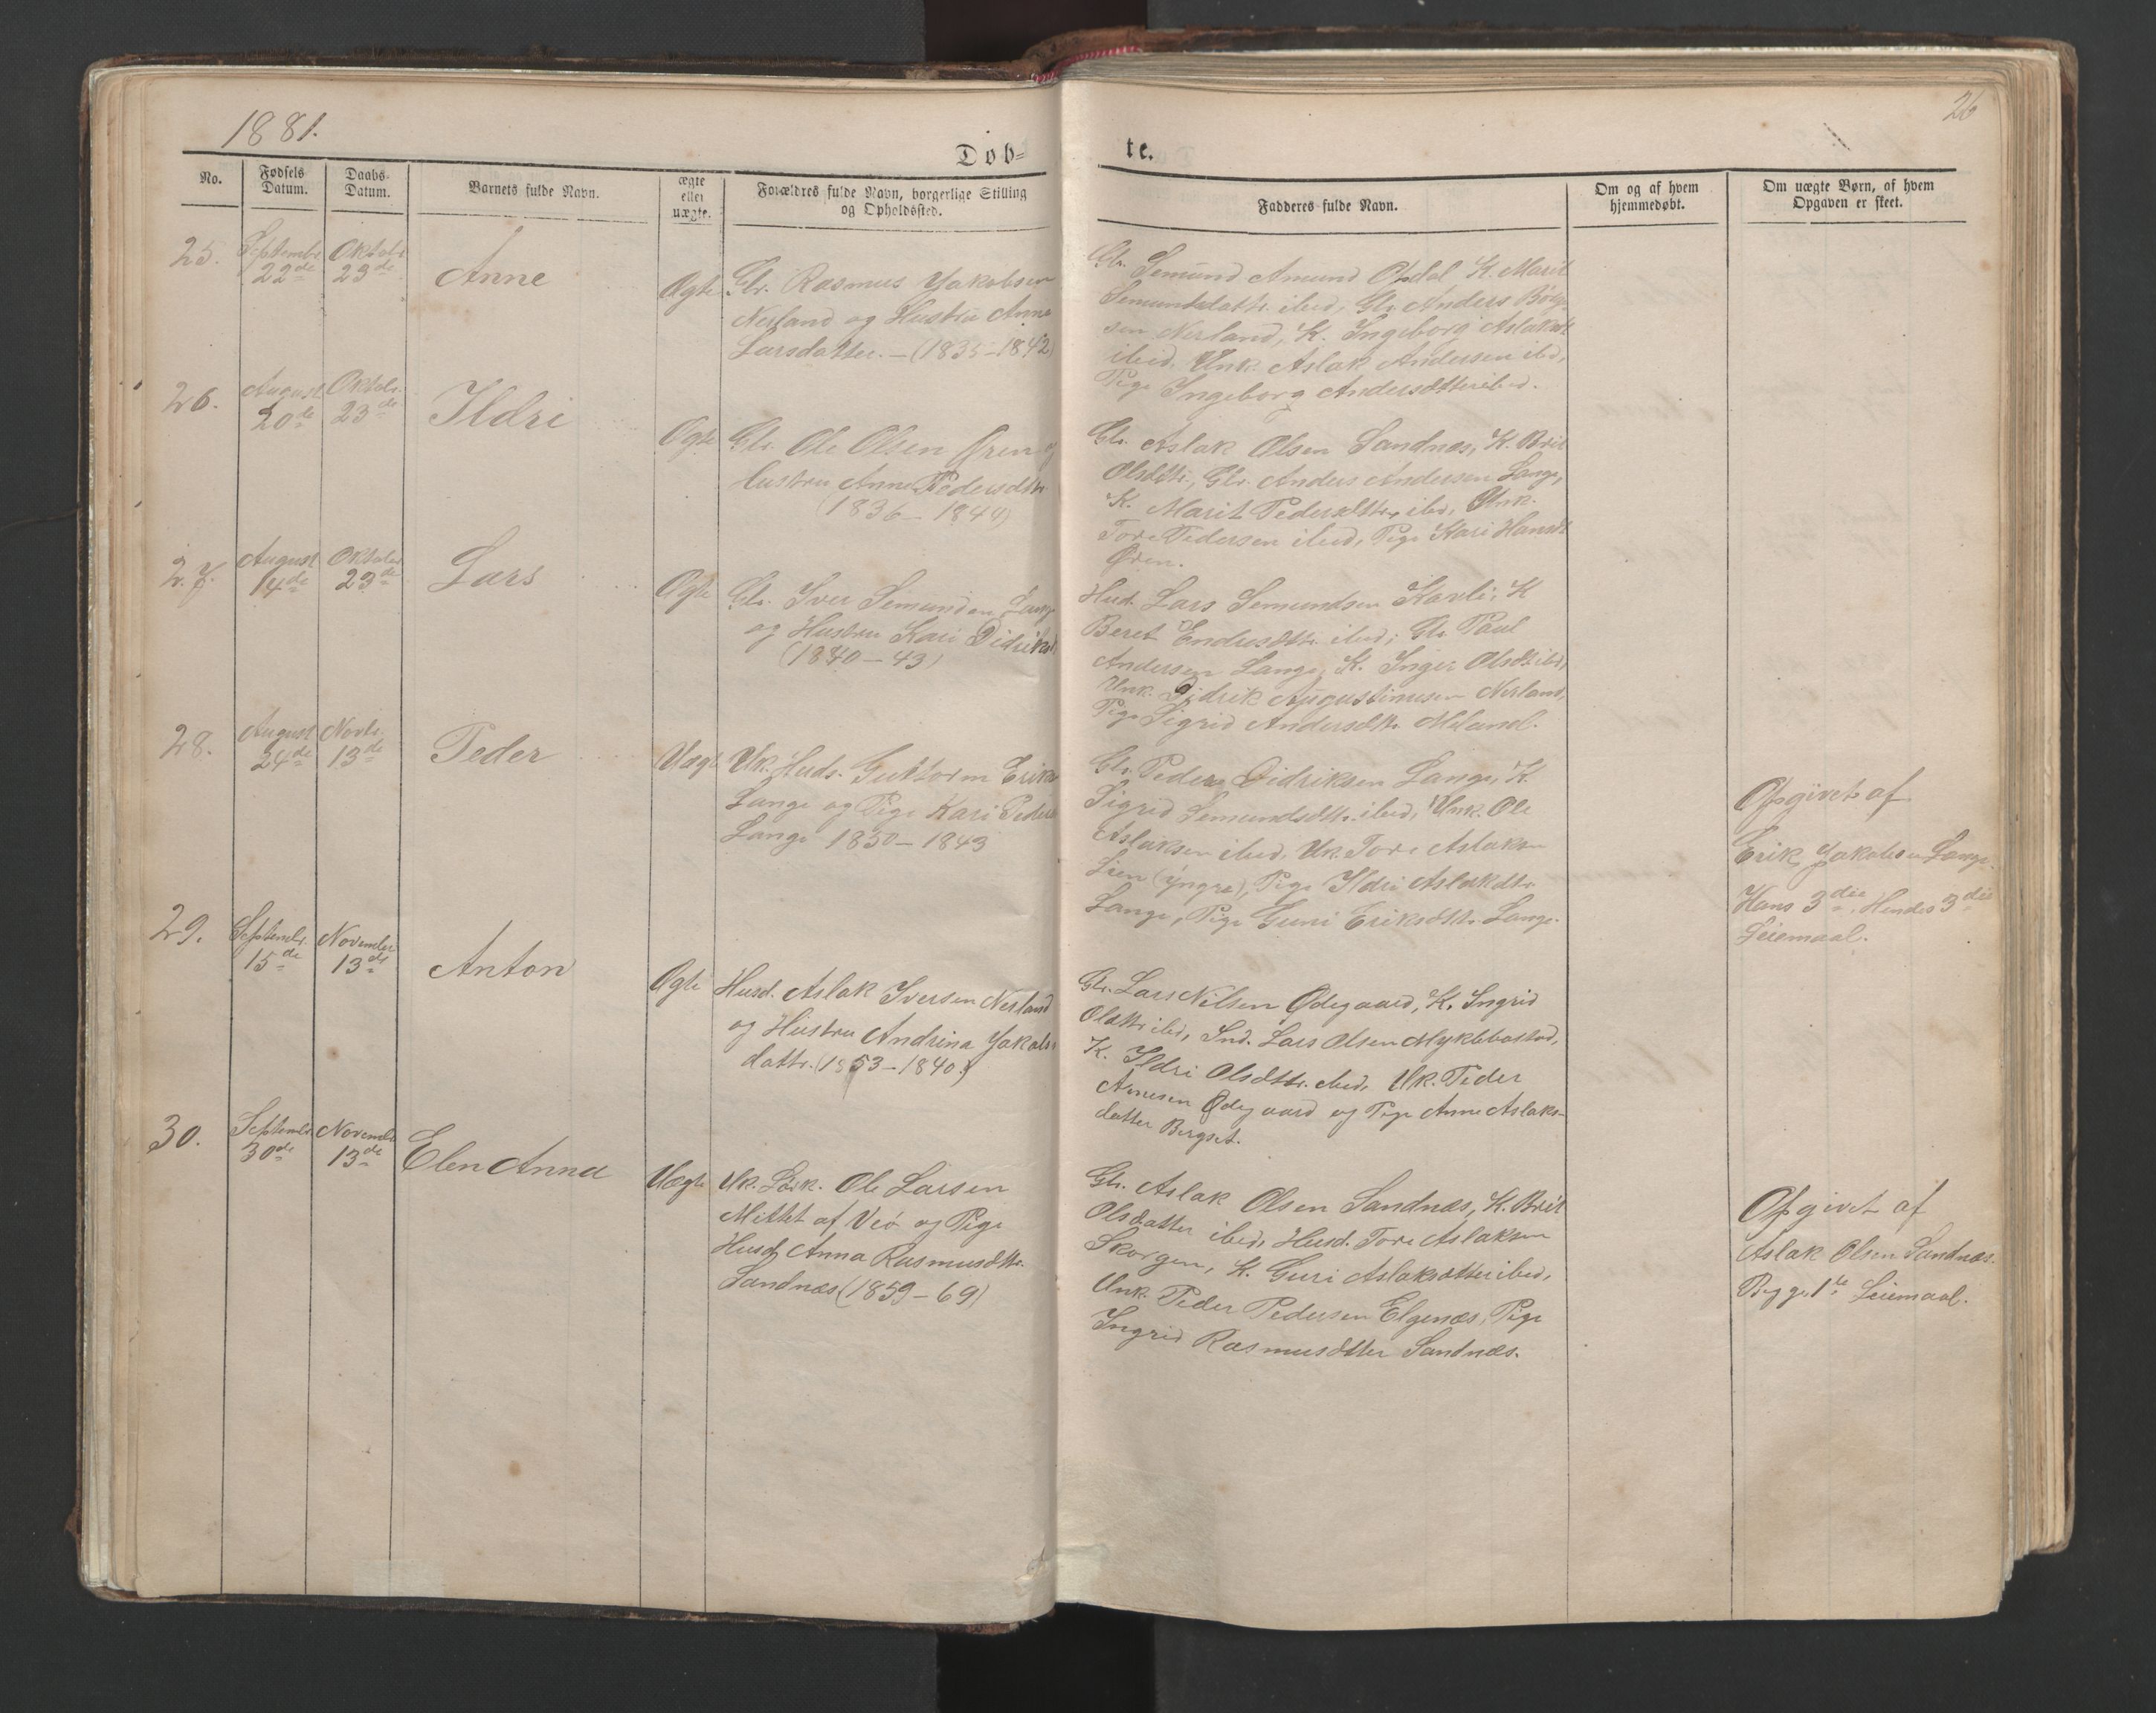 1881.
26
Døb=
te.
No.
Fødsels Datum.
Daabs- Datum.
Barnets fulde Navn.
ægte eller uægte.
Forældres fulde Navn, borgerlige Stilling og Opholdssted.
Fadderes fulde Navn.
Om og af hvem hjemmedøbt.
Om uægte Børn, af hvem Opgaven er skeet.
25.
Septembr 22de
Oktobr 23de
Anne
Ægte
Gbr. Rasmus Jakobsen
Nerland og Hustru Anne
Larsdatter. - (1835-1842)
Gbr. Semund Amund Opdal K. Marit
Semundsdattr. ibid, Gbr. Anders
Nerland, K. Ingeborg Aslaksdt
ibid. Unk. Aslak Andersen ibd,
Pige Ingeborg Andersdtter ibid.
26.
August 20de
Oktobr. 23de
Ildri
Ægte
Gbr. Ole Olsen Øren og
Hustru Anne Pedersdtr.
(1836 - 1844)
Gbr. Aslak Olsen Sandnæs, K. Brit
Olsdttr., Gbr. Anders Andersen Lange,
K. Marit Pedersdttr. ibd, Unk.
Tore Pedersen ibid, Pige Kari Hansdt
Øren.
27.
August 14de
Oktober 23de
Lars
Ægte
Gbr. Iver Semundsen Lange
og Hustru Kari Didriksd
(1840 - 43)
Husd. Lars Semundsen Kavli, K
Beret Endresdttr. ibid; Gbr Paul
Andersen Lange, K. Inger Olsdt ibd,
Unk. Didrik Augustinusen Nerland,
Pige Sigrid Andersdttr. Meland.
28.
August 24de
Novbr. 13de
Peder
Uægt
Uk. Husds. Guttorm Eriks
Lange og Pige Kari Peders
Lange 1850 - 1843
Gbr. Peder Didriksen Lange, K.
Sigrid Semundsdttr. ibid, Unk. Ole
Aslaksen ibid, Uk. Tore Aslaksen
Lien (yngre), Pige Ildri Aslaksdtr.
Lange, Pige Guni Eriksdttr. Lange.
Opgivet af
Erik Jakobsen Lange.
Hans 3die, Hendes 3die
Leiermaal.
29.
Septembr. 15de
November 13de
Anton
Ægte
Husd. Aslak Iversen Nerland
og Hustru Andrina Jakobs-
dattr. (1853 - 1840.)
Gbr. Lars Nilsen Ødegaard, K. Ingrid
Olsdttr ibd, Ind. Lars Olsen Myklebostad,
K. Ildri Olsdttr. ibid, Uk. Peder
Arnesen Ødegaard og Pige Anne Aslaks-
datter Bergset.
30.
Septembr 30de
Novembr 13de
Elen Anna
Uægte
Uk. Ole Larsen
Mittet af Veø og Pige
Husd. Anna Rasmusdttr.
Sandnæs (1859 - 69)
Gbr. Aslak Olsen Sandnæs, K. Brit
Olsdatter ibid, Husd. Tore Aslaksen
Skorgen, K. Guri Aslaksdtter ibid,
Unk. Peder Pedersen Elgenæs, Pige
Ingrid Rasmusdtter Sandnæs.
Opgivet af
Aslak Olsen Sandnæs.
Begge 1te Leiermaal.